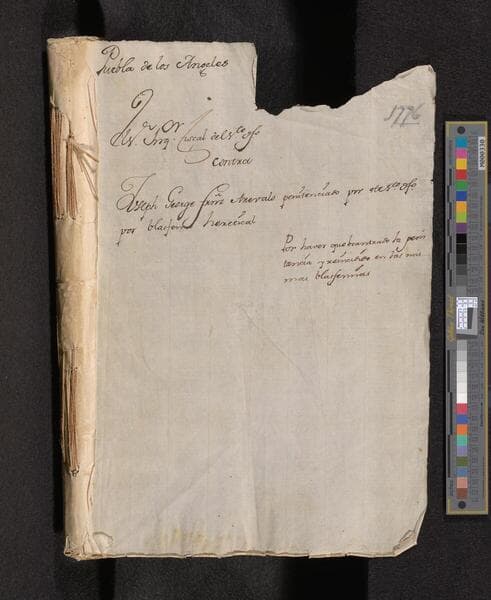 Puebla de los Angeles
1776
El Sr. Inqr. Fiscal del Sto. Ofo
contra
Joseph George Arevalo penitenciado por este Sto. Ofo
por blasfemo heretical
Por haver quebrantado la peni
tencia y reincidido en las mis
mas blasfemias
M000330